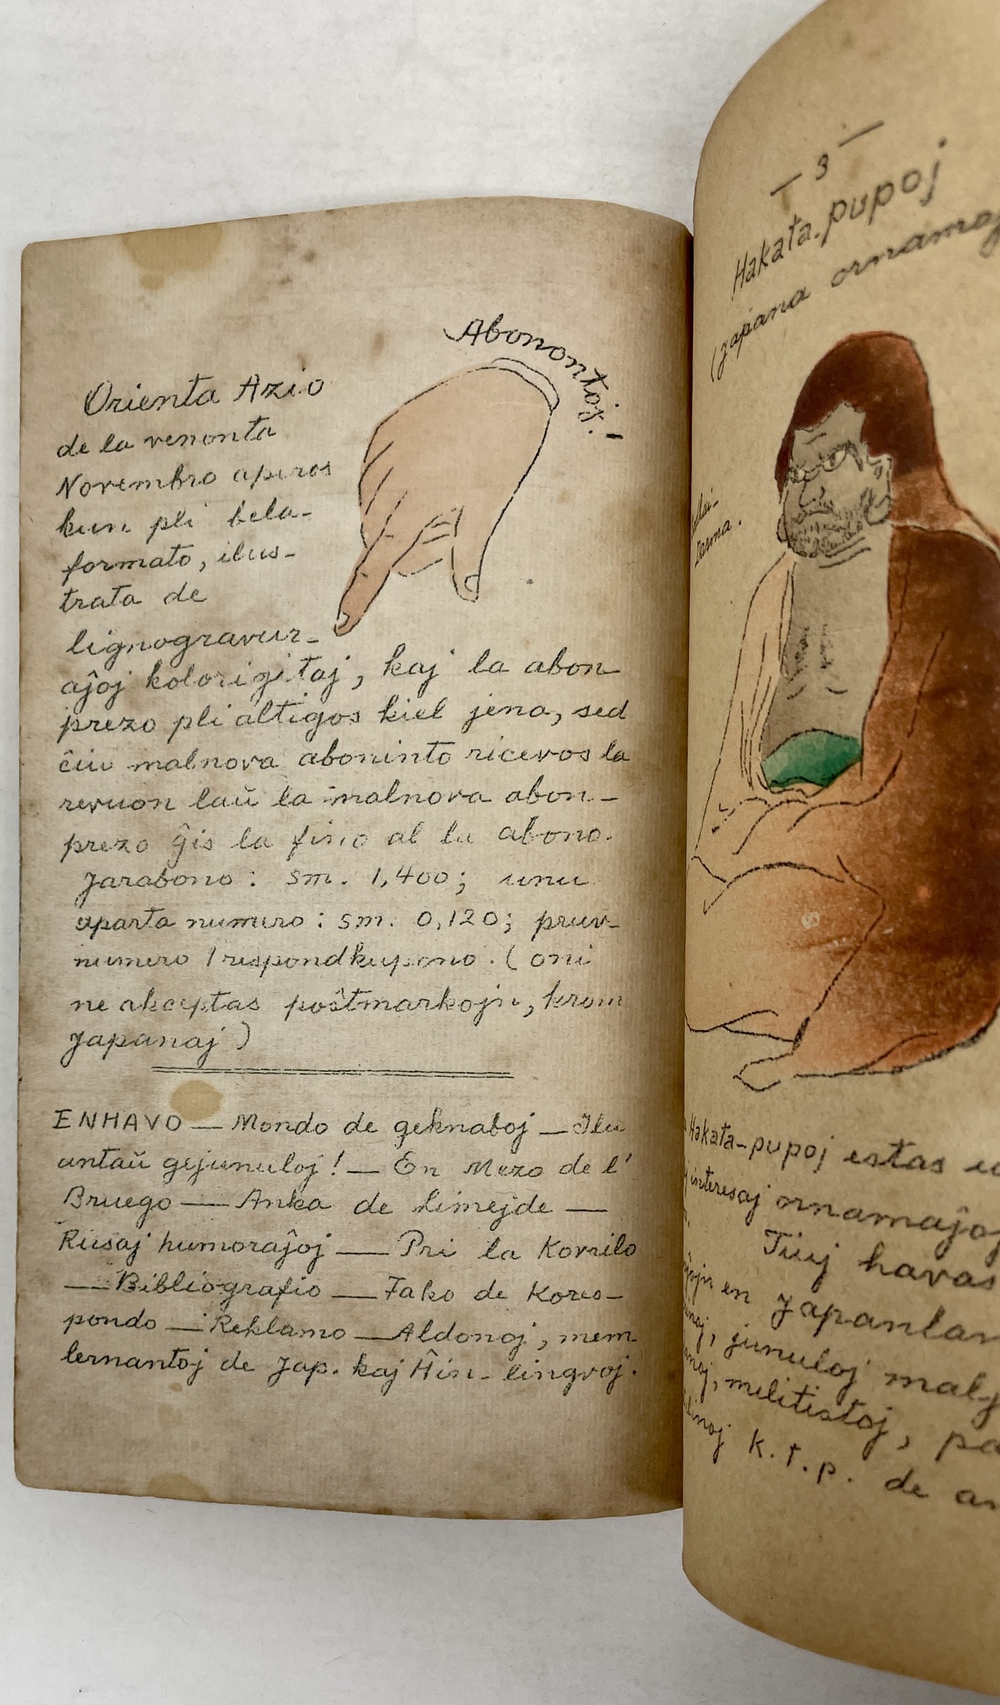 Abonontoj!
Orienta Azio
de la venonta
Novembro aperos
kun pli bela-
formato, ilus-
trata de
lignogravur-
aĵoj kolorigitaj, kaj la abon
prezo pli altigos kiel jena, sed
ĉiu malnova aboninto ricevos la
revuon laŭ la malnova abon-
prezo ĝis la fino al la abono.
Jarabono: sm. 1,400; unu
aparta numero: sm. 0,120; pruv-
numero 1 respondkupono. (oni
ne akceptas poŝtmarkojn, krom
japanaj)
ENHAVO — Mondo de geknaboj — Ilu
antaŭ gejunuloj! — En Mezo de l'
Bruego — Anka de Limejde —
Rusaj humoraĵoj — Pri la Kovrilo
— Bibliografio — Fako de Kores-
pondo — Reklamo — Aldonoj, mem
lernantoj de Jap. kaj Ĥin- lingvoj.
— 3 —
Hakata-pupoj
(japana
Hakata-pupoj estas
interesaj ornamaĵoj
Tiuj havas
en Japanlan
junuloj malj
militistoj, pa
k.t.p. de